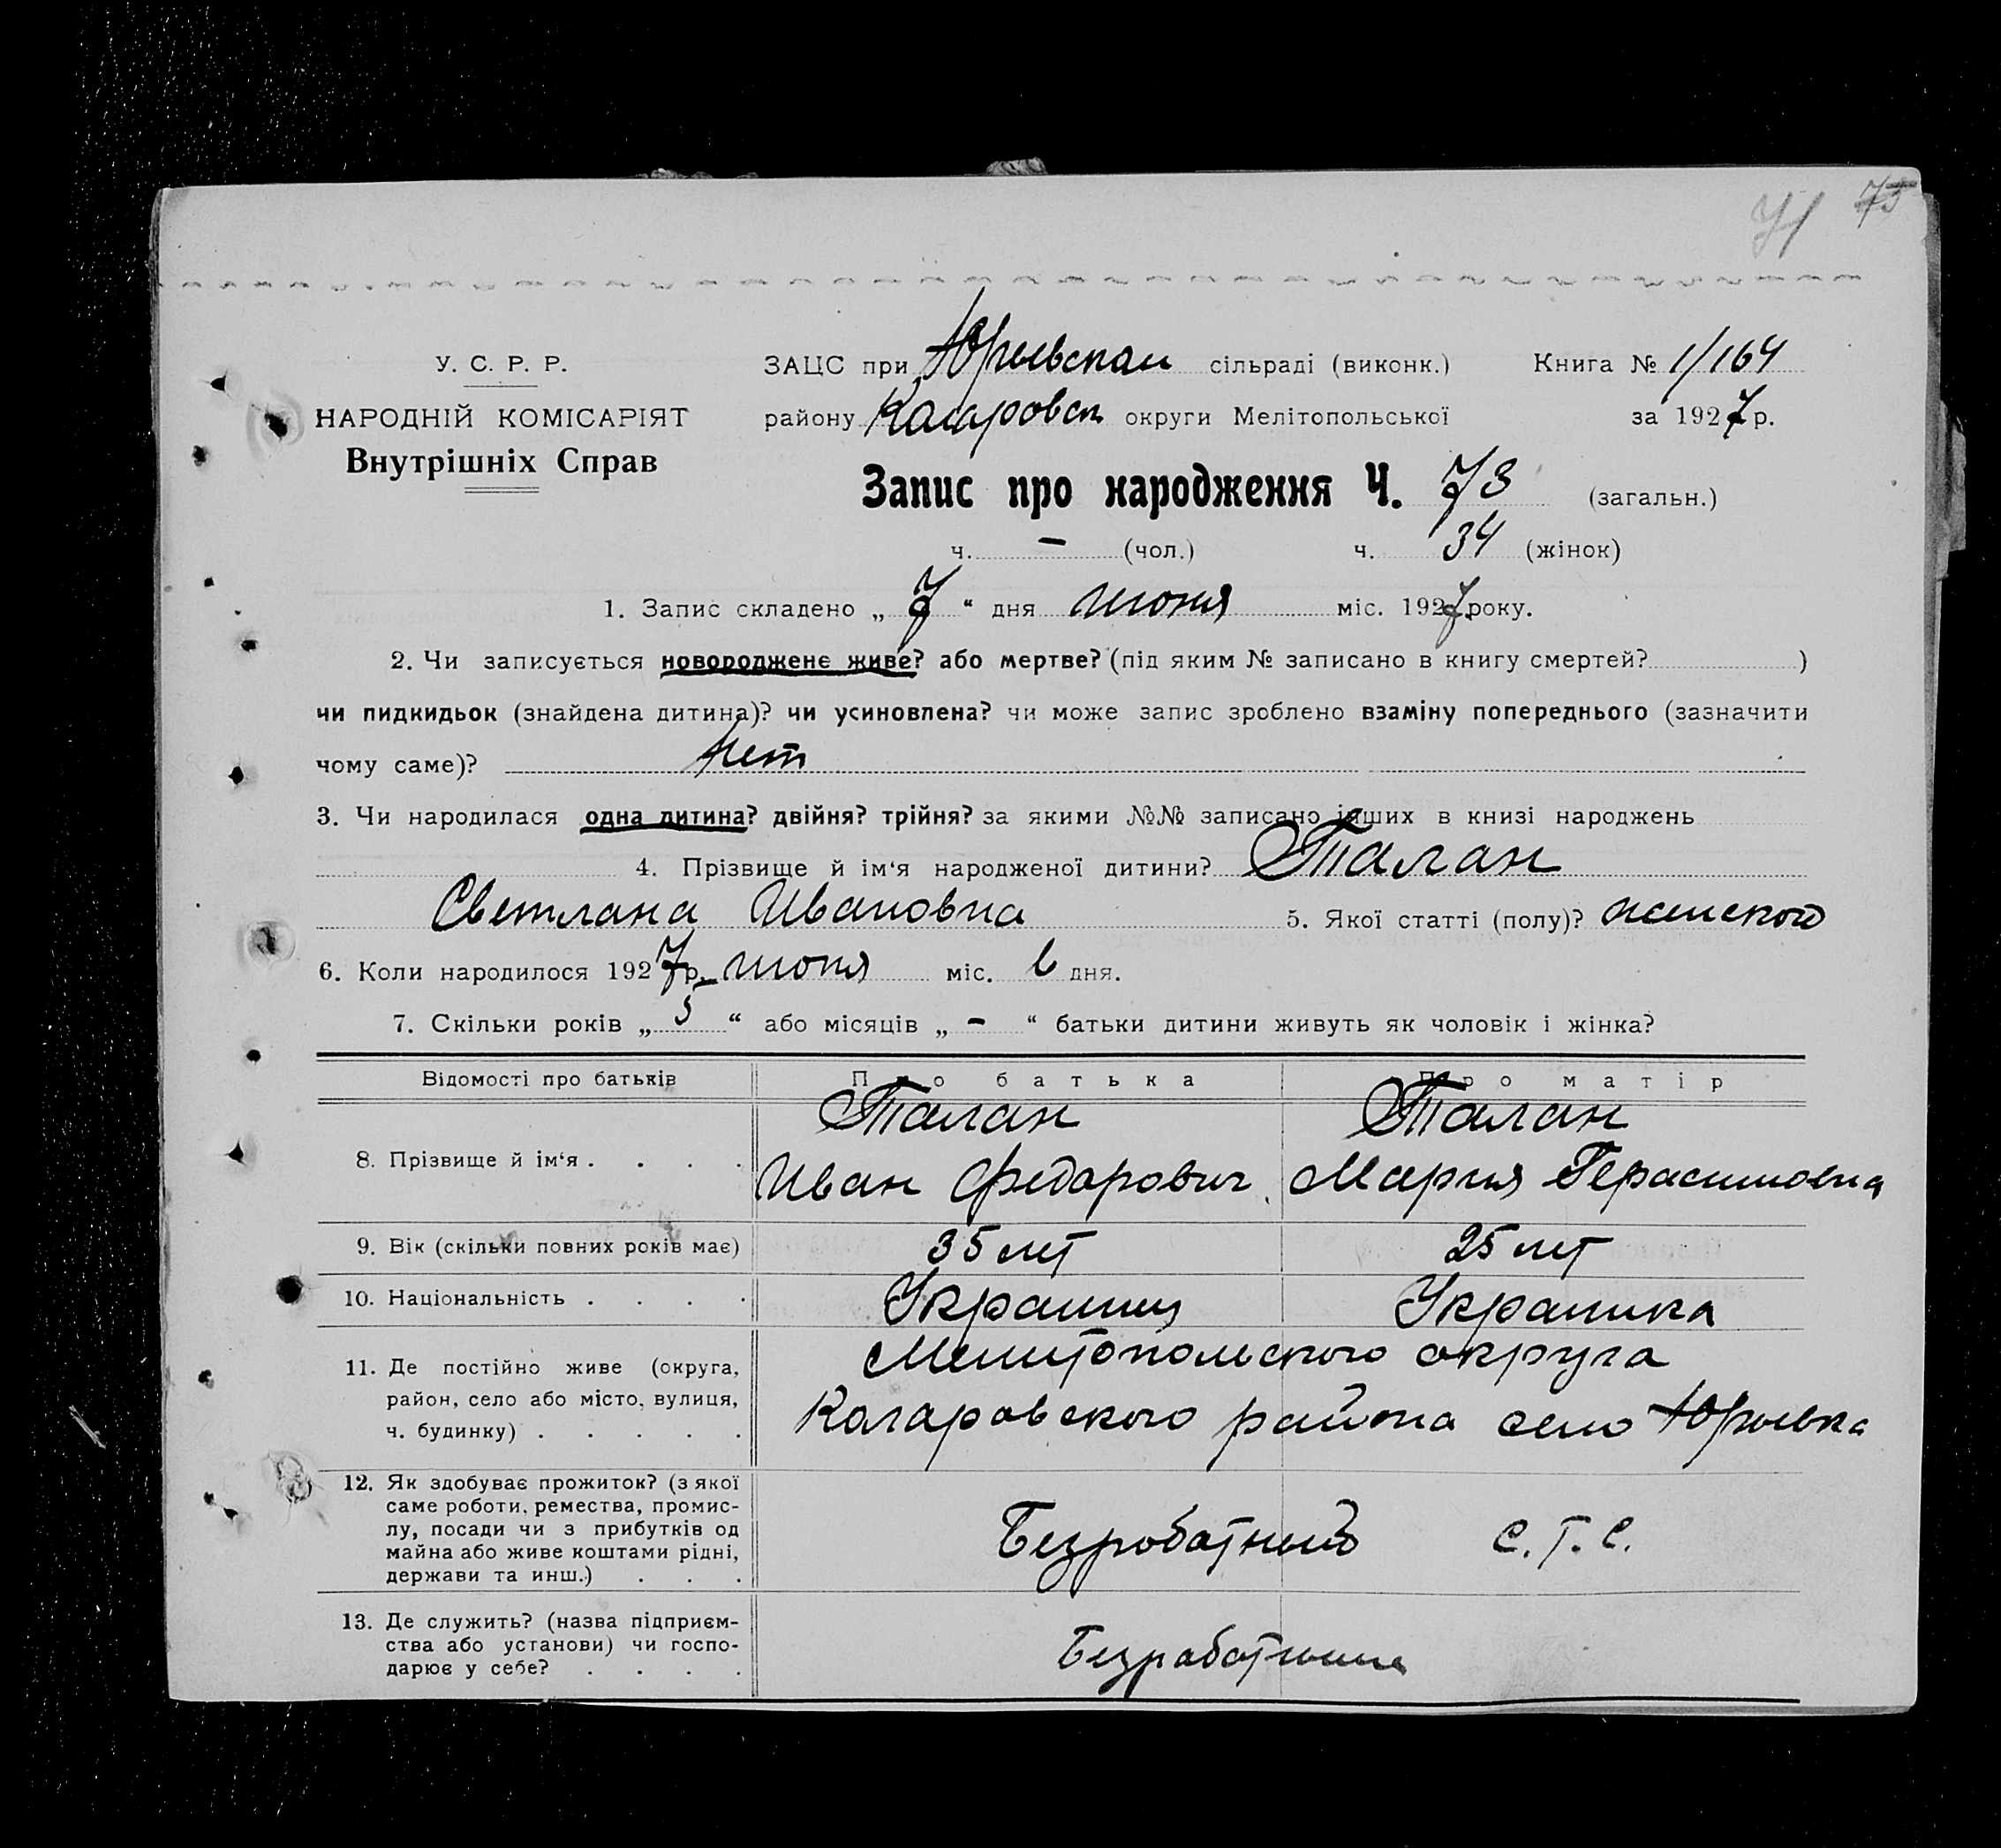 71 75
У. С. Р. Р.
НАРОДНІЙ КОМІСАРІЯТ
Внутрішніх Справ
ЗАЦС при Юрьевской сільраді (виконк.) Книга № 1/164
району округи Мелітопольської за 1927 р.
Запис про народження Ч. 73 (загальн.)
ч. – (чол.) ч. 34 (жінок)
1. Запис складено „ 7 “ дня июня міс. 1927 року.
2. Чи записується новороджене живе? або мертве? (під яким № записано в книгу смертей? )
чи пидкидьок (знайдена дитина)? чи усиновлена? чи може запис зроблено взаміну попереднього (зазначити
чому саме)? нет
3. Чи народилася одна дитина? двійня? трійня? за якими №№ записано інших в книзі народжень
4. Прізвище й ім‘я народженої дитини? Талан
Светлана Ивановна 5. Якої статті (полу)? женского
6. Коли народилося 1927 р. июня міс. 6 дня.
7. Скільки років „ 5 “ або місяців „ – “ батьки дитини живуть як чоловік і жінка?
Відомості про батьків Про батька Про матір
8. Прізвище й ім‘я . . . . Талан Талан
Иван Федорович Мария Герасимовна
9. Вік (скільки повних років має) 35 лет 25 лет
10. Національність . . . . Украинец Украинка
11. Де постійно живе (округа,
район, село або місто, вулиця,
ч. будинку) . . . . .
Мелитопольского округа
района село Юрьевка
12. Як здобуває прожиток? (з якої
саме роботи, ремества, промис-
лу, посади чи з прибутків од
майна або живе коштами рідні,
держави та инш.) . . .
Безроботный С. Т. С.
13. Де служить? (назва підприєм-
ства або установи) чи госпо-
дарює у себе? . . . .